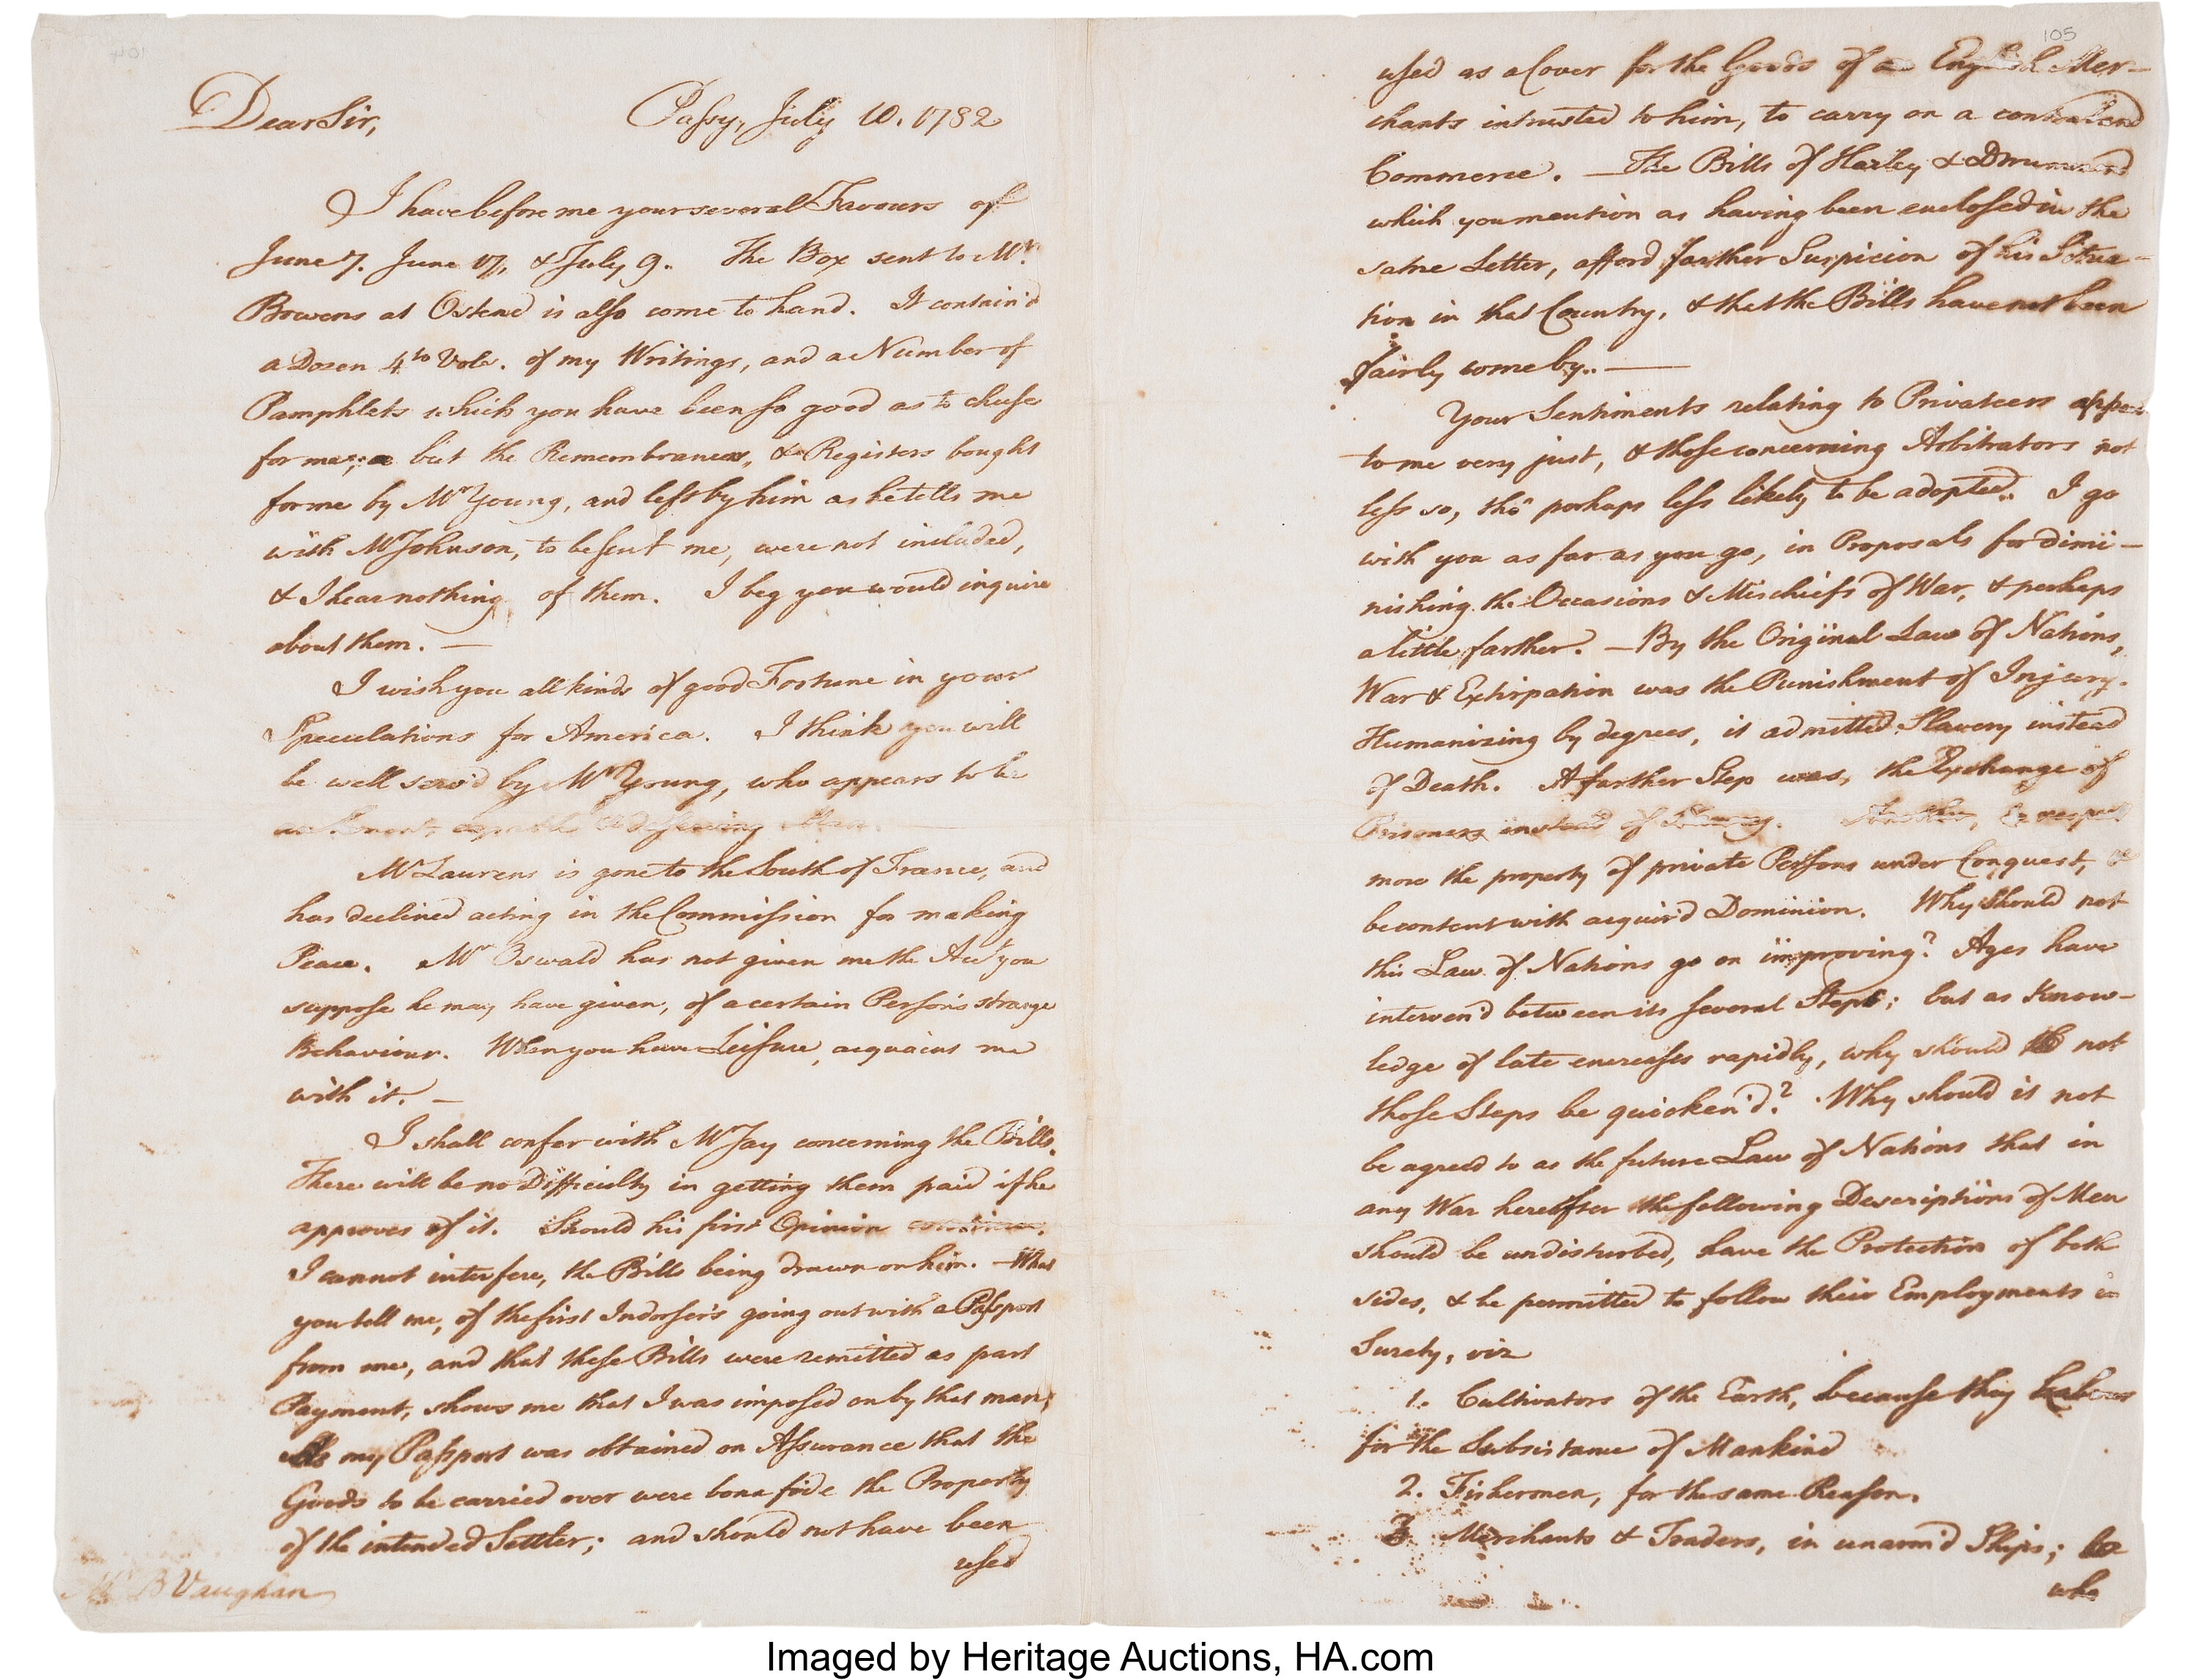 Dear Sir,
Passy, July 10. 1782
I have before me your several Favours of
June 7. June 17, & July 9. The Box sent to Mr.
Bowens at Ostend is also come to hand. It contain'd
a Dozen 4to Vols. of my Writings, and a Number of
Pamphlets which you have been so good as to chuse
for me; but the Remembrances, & Registers bought
for me by Mr Young, and left by him as he tells me
with Mr Johnson, to be sent me, were not included,
& I hear nothing of them. I beg you would inquire
about them. —
I wish you all kinds of good Fortune in your
Speculations for America. I think you will
be well serv'd by Mr Young, who appears to be
deserving Man.
Mr Laurens is gone to the South of France, and
has declined acting in the Commission for making
Peace. Mr Oswald has not given me the Acct you
suppose he may have given, of a certain Person's strange
Behaviour. When you have Leisure, acquaint me
with it. —
I shall confer with Mr Jay concerning the Bills.
There will be no Difficulty in getting them paid if he
approves of it. Should his first Opinion continue,
I cannot interfere, the Bills being drawn on him. — What
you tell me, of the first Indorser's going out with a Passport
from me, and that these Bills were remitted as part
Payment, shows me that I was imposed on by that man;
As my Passport was obtained on Assurance that the
Goods to be carried over were bona fide the Property
of the intended Settler; and should not have been
used
Mr B Vaughan
105
used as a Cover for the Goods of English Mer–
chants intrusted to him, to carry on a contraband
Commerce. — The Bills of Harley & Drummond
which you mention as having been enclosed in the
same Letter, afford farther Suspicion of his Situa–
tion in that Country, & that the Bills have not been
fairly come by. —
Your Sentiments relating to Privateers appear
to me very just, & those concerning Arbitrators not
less so, tho' perhaps less likely to be adopted. I go
with you as far as you go, in Proposals for dimi–
nishing the Occasions & Mischiefs of War, & perhaps
a little farther. — By the Original Law of Nations,
War & Extirpation was the Punishment of Injury.
Humanizing by degrees, it admitted Slavery instead
of Death. A farther Step was, the Exchange of
Prisoners instead of Slavery. Another, to respect
more the property of private Persons under Conquest, &
be content with acquir'd Dominion. Why should not
this Law of Nations go on improving? Ages have
interven'd between its several Steps; but as Know–
ledge of late encreases rapidly, why should not
those Steps be quicken'd? Why should it not
be agreed to as the future Law of Nations that in
any War hereafter the following Descriptions of Men
should be undisturbed, have the Protection of both
sides, & be permitted to follow their Employments in
Surety, viz
1. Cultivators of the Earth, because they Labour
for the Subsistance of Mankind
2. Fishermen, for the same Reason.
3. Merchants & Traders, in unarm'd Ships;
who
Imaged by Heritage Auctions, HA.com